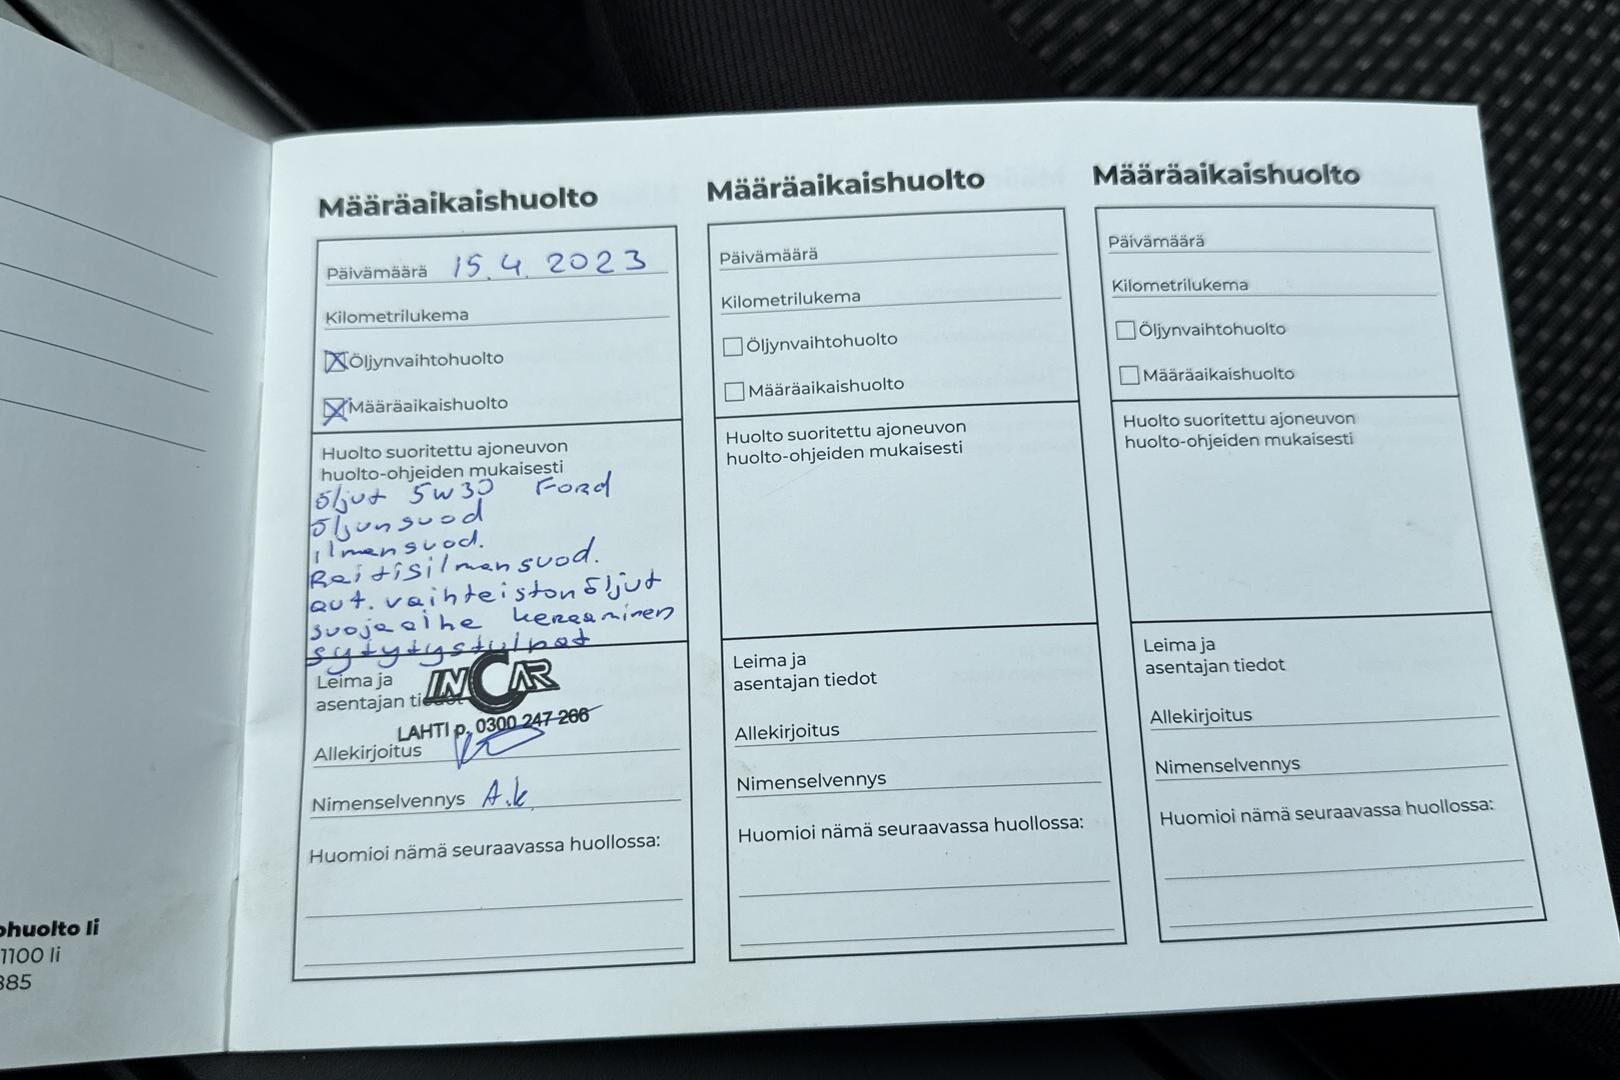 ohuolto Ii
1100 Ii
885
Määräaikaishuolto
Päivämäärä 15.4.2023
Kilometrilukema
Öljynvaihtohuolto
Määräaikaishuolto
Huolto suoritettu ajoneuvon
huolto-ohjeiden mukaisesti
öljyt 5W30 Ford
öljynsuod
ilmansuod.
Raitisilmansuod.
aut. vaihteistonöljyt
suojaaihe keraaminen
sytytystulpat
Leima ja
asentajan tiedot
INCAR
LAHTI p. 0300 247 266
Allekirjoitus
Nimenselvennys A.k.
Huomioi nämä seuraavassa huollossa:
Määräaikaishuolto
Päivämäärä
Kilometrilukema
Öljynvaihtohuolto
Määräaikaishuolto
Huolto suoritettu ajoneuvon
huolto-ohjeiden mukaisesti
Leima ja
asentajan tiedot
Allekirjoitus
Nimenselvennys
Huomioi nämä seuraavassa huollossa:
Määräaikaishuolto
Päivämäärä
Kilometrilukema
Öljynvaihtohuolto
Määräaikaishuolto
Huolto suoritettu ajoneuvon
huolto-ohjeiden mukaisesti
Leima ja
asentajan tiedot
Allekirjoitus
Nimenselvennys
Huomioi nämä seuraavassa huollossa: